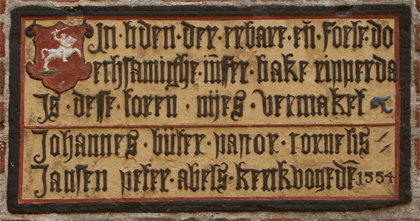 In · tiden · der · erbare · eñ · foele · do
echsamighe · iũfer · bake · ripperda
Is · desse · toren · nijes · vermaket
Johannes · buter · pastor · cornelis
Jansen · peter · abels · kerkvogedẽ 1554